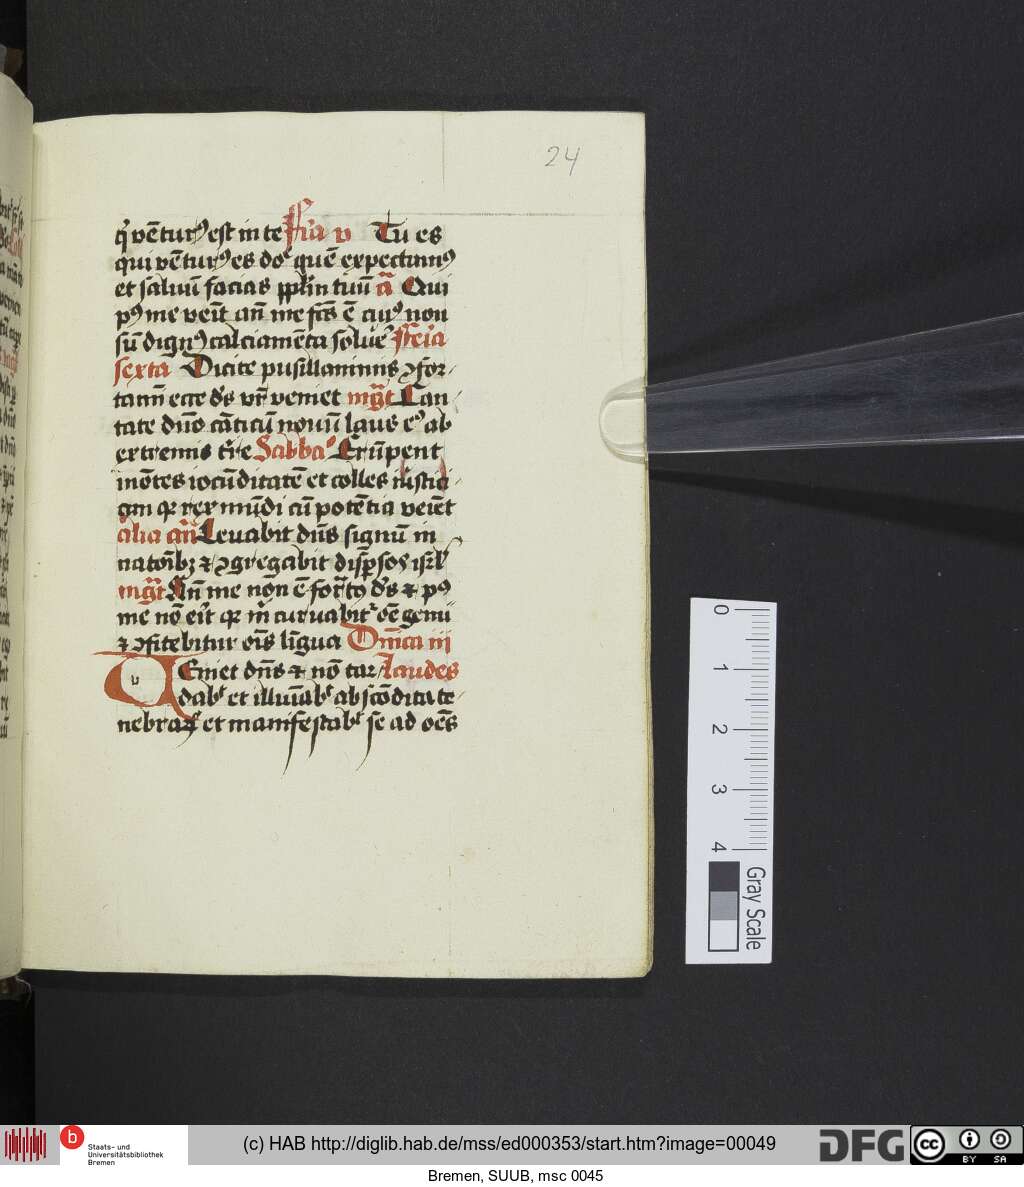 24
qͥ vētur⁹ est in te Fr̄ia v Tu es
qui vētur⁹ es do᷑ quē expectam⁹
et saluū facias pplm̄ tuū a᷑ Qui
p⁹ me veit̄ an̄ me fc̄s ē cui⁹ non
sū dign⁹ calciamēta soluer̄ Fer̄ia
sexta Dicite pusillanimis ɔfor-
tam̄ ecce ds̄ vr̄ veniet mg̅t Can-
tate dn̄o cāticū nouū laus e⁹ ab
extremis tr̄e Sabba᷑ Erūpent
mōtes iocūditatē et colles iusticiā
qꝛ rex mūdi cū potētia veiēt
alia an̄ Leuabit dn̄s signū in
natōibꝫ ⁊ ɔgregabit disp̱sos isrl̄
mg̅t An̄ me nōn ē for̄t⁹ ds̄ ⁊ p⁹
me nō eit̄ qꝛ m̄ curuabit᷑ oē genu
⁊ ɔfitebitur oīs līgua Dn̄ica iii
VEniet dn̄s ⁊ nō tar- Laudes
dab᷑ et illuīab᷑ abscōdita te-
nebraꝝ et manifestab᷑ se ad oēs
0 1 2 3 4
Gray Scale
b Staats- und
Universitätsbibliothek
Bremen
(c) HAB http://diglib.hab.de/mss/ed000353/start.htm?image=00049
DFG
cc BY SA
Bremen, SUUB, msc 0045